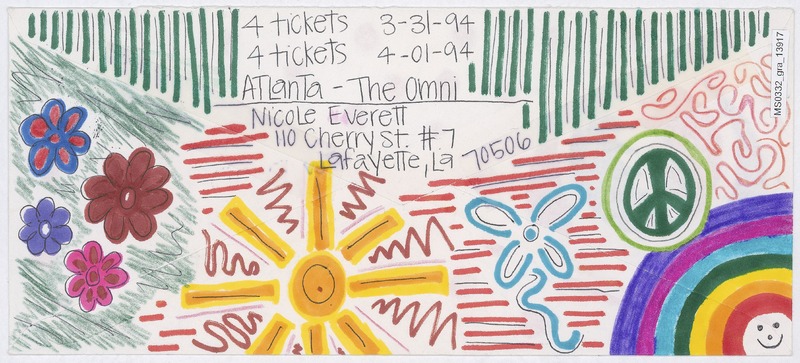 4 tickets 3-31-94
4 tickets 4-01-94
Atlanta - The Omni
Nicole Everett
110 Cherry St. #7
Lafayette, La 70506
MS0332_gra_13917